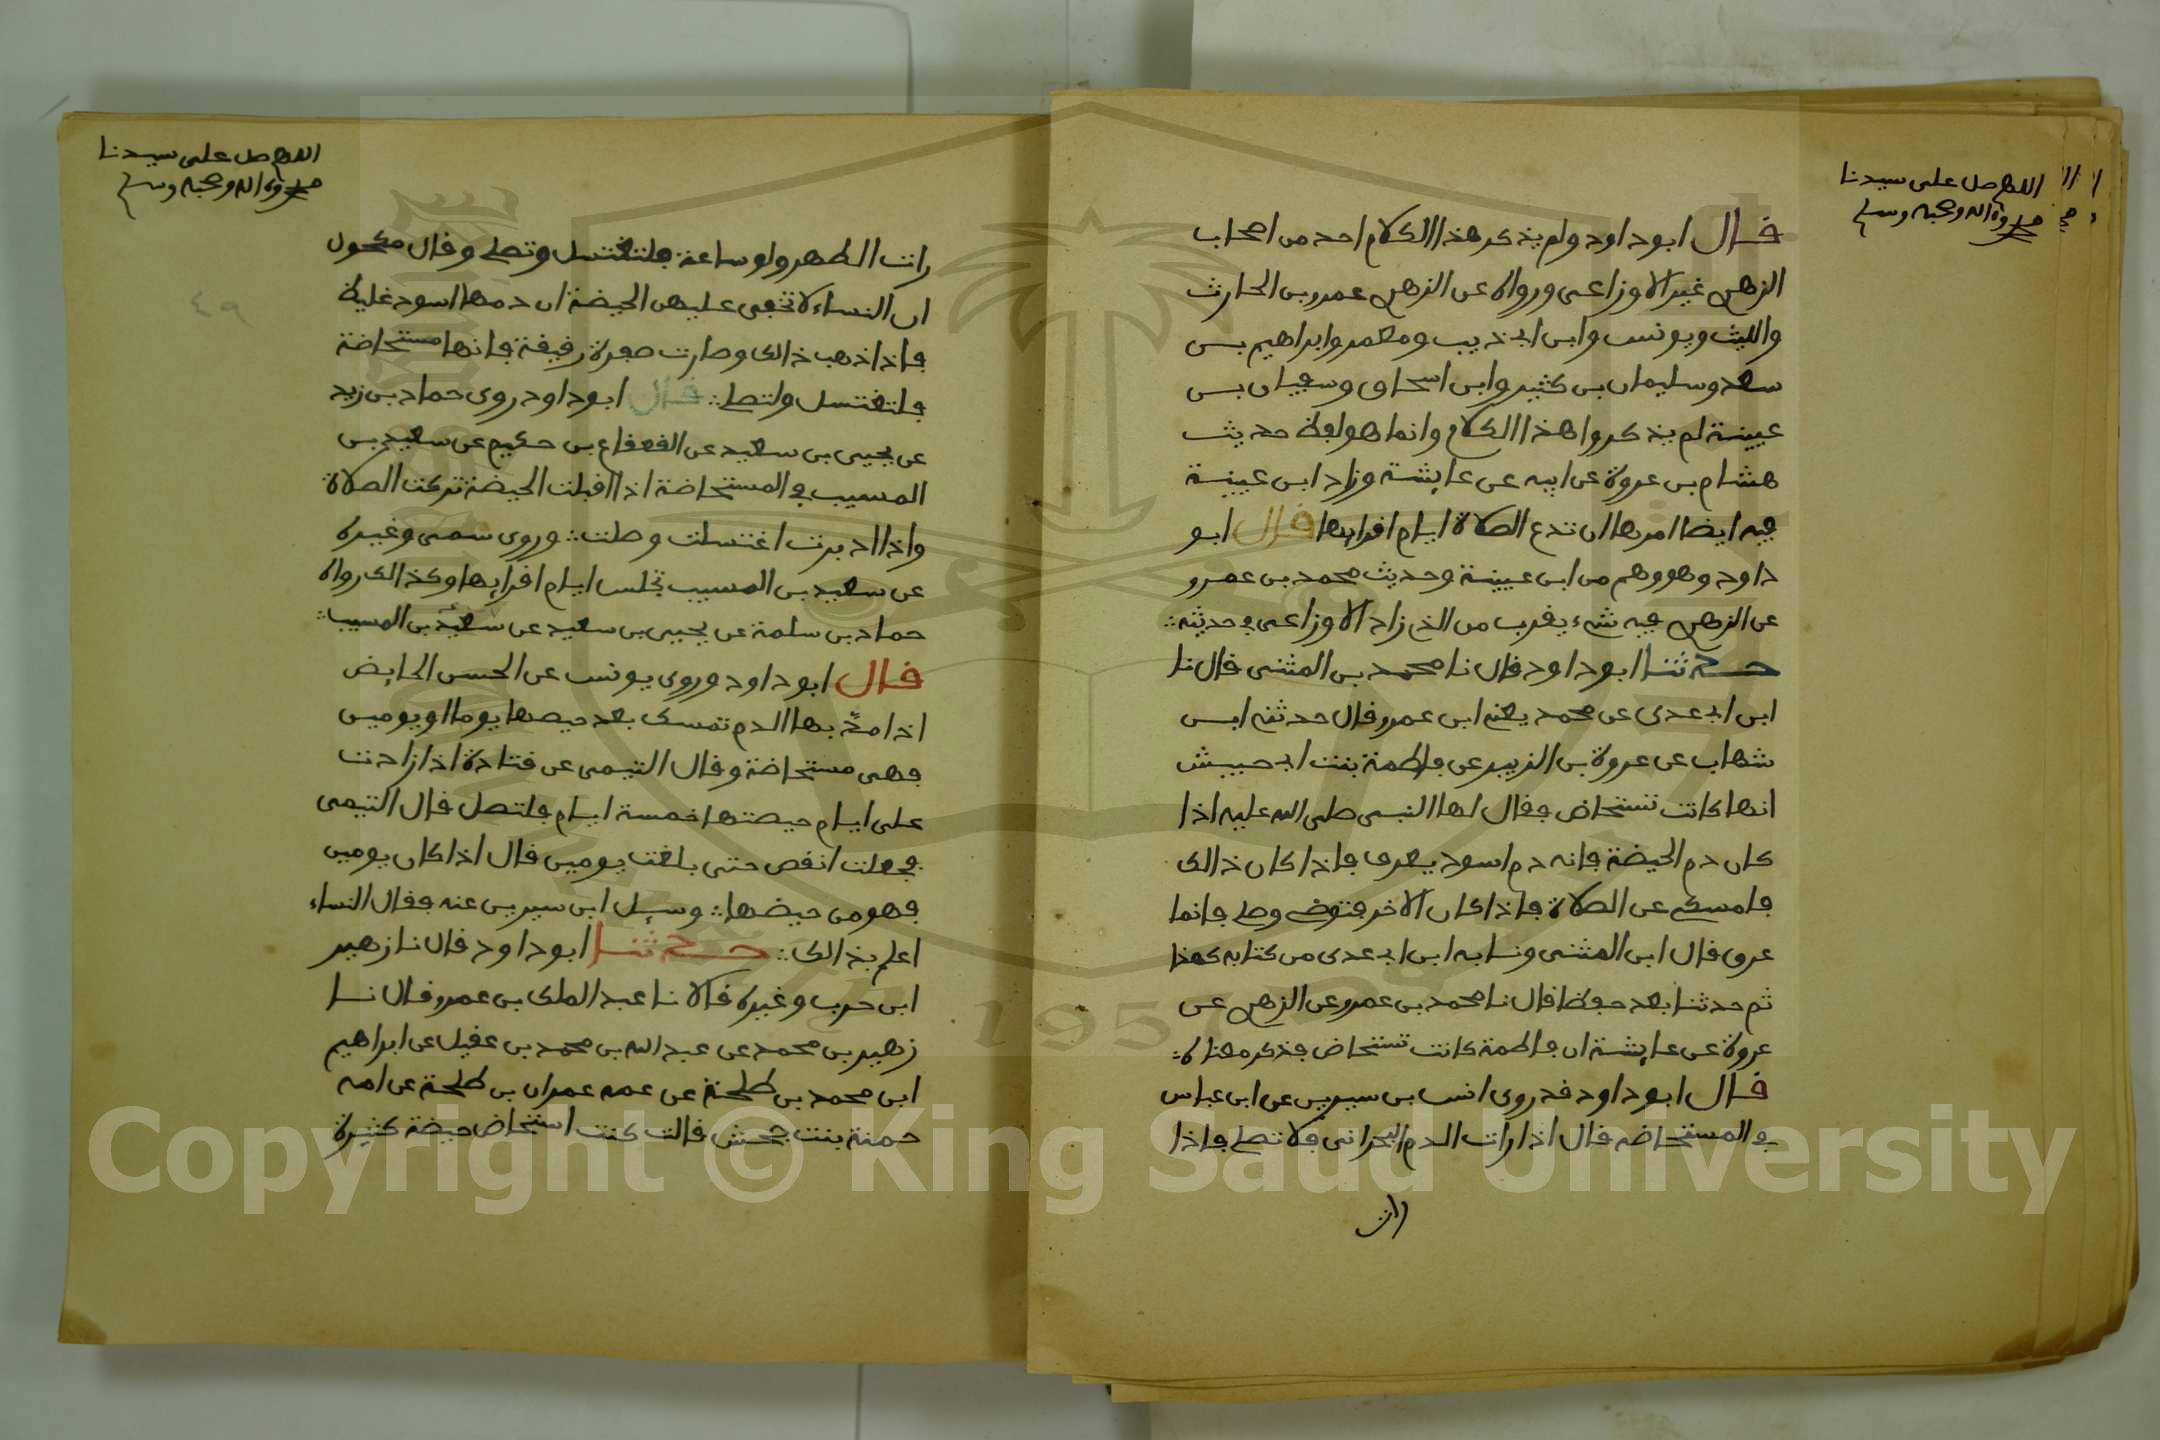 اللهم صل على سيدنا
محمد وءاله وصحبه وسلم
قال ابو داود ولم يذكر هذا الكلام احد من اصحاب
الزهري غير الاوزاعي ورواه عن الزهري عمرو بن الحارث
والليث ويونس وابن ابي ذيب ومعمر وابراهيم بن
سعد وسليمان بن كثير وابن اسحاق وسفيان بن
عيينة لم يذكروا هذا الكلام وانما هو لفظ حديث
هشام بن عروة عن ابيه عن عايشة وزاد ابن عيينة
فيه ايضا امرها ان تدع الصلاة ايام اقرايها قال ابو
داود وهو وهم من ابن عيينة وحديث محمد بن عمرو
عن الزهري فيه شيء يقرب من الذي زاد الاوزاعي في حديثه
حدثنا ابو داود قال نا محمد بن المثنى قال نا
ابن ابي عدي عن محمد يعني ابن عمرو قال حدثني ابن
شهاب عن عروة بن الزبير عن فاطمة بنت ابي حبيش
انها كانت تستحاض فقال لها النبي صلى الله عليه اذا
كان دم الحيضة فانه دم اسود يعرف فاذا كان ذالك
فامسكي عن الصلاة فاذا كان الاخر فتوضي وصلي فانما
عرق قال ابن المثنى ونا به ابن ابي عدي من كتابه كهذا
ثم حدثنا بعد حفظا قال نا محمد بن عمرو عن الزهري عن
عروة عن عايشة ان فاطمة كانت تستحاض فذكر معناه
قال ابو داود قد روى انس بن سيرين عن ابن عباس
في المستحاضه قال اذا رات الدم البحراني فلا تصلي فاذا
رات
اللهم صل على سيدنا
محمد وءاله وصحبه وسلم
٤٩
رات الطهر ولو ساعة فلتغتسل وتصلي وقال مكحول
ان النساء لا تخفى عليهن الحيضة ان دمها اسود غليظ
فاذا ذهب ذالك وصارت صفرة رقيقة فانها مستحاضة
فلتغتسل ولتصلي قال ابو داود روى حماد بن زيد
عن يحيى بن سعيد عن القعقاع بن حكيم عن سعيد بن
المسيب في المستحاضة اذا اقبلت الحيضة تركت الصلاة
واذا ادبرت اغتسلت وصلت وروى سمي وغيره
عن سعيد بن المسيب تجلس ايام اقرايها وكذالك رواه
حماد بن سلمة عن يحيى بن سعيد عن سعيد بن المسيب
قال ابو داود وروى يونس عن الحسن الحايض
اذا مد بها الدم تمسك بعد حيضها يوما او يومين
فهي مستحاضة وقال التيمي عن قتادة اذا زادت
على ايام حيضتها خمسة ايام فلتصل قال التيمي
فجعلت انقص حتى بلغت يومين قال اذا كان يومين
فهو من حيضها وسيل ابن سيرين عنه فقال النساء
اعلم بذالك حدثنا ابو داود قال نا زهير
ابن حرب وغيره قالا نا عبد الملك بن عمرو قال نا
زهير بن محمد عن عبد الله بن محمد بن عقيل عن ابراهيم
ابن محمد بن طلحة عن عمه عمران بن طلحة عن امه
حمنة بنت جحش قالت كنت استحاض حيضة كثيرة
1957
Copyright © King Saud University